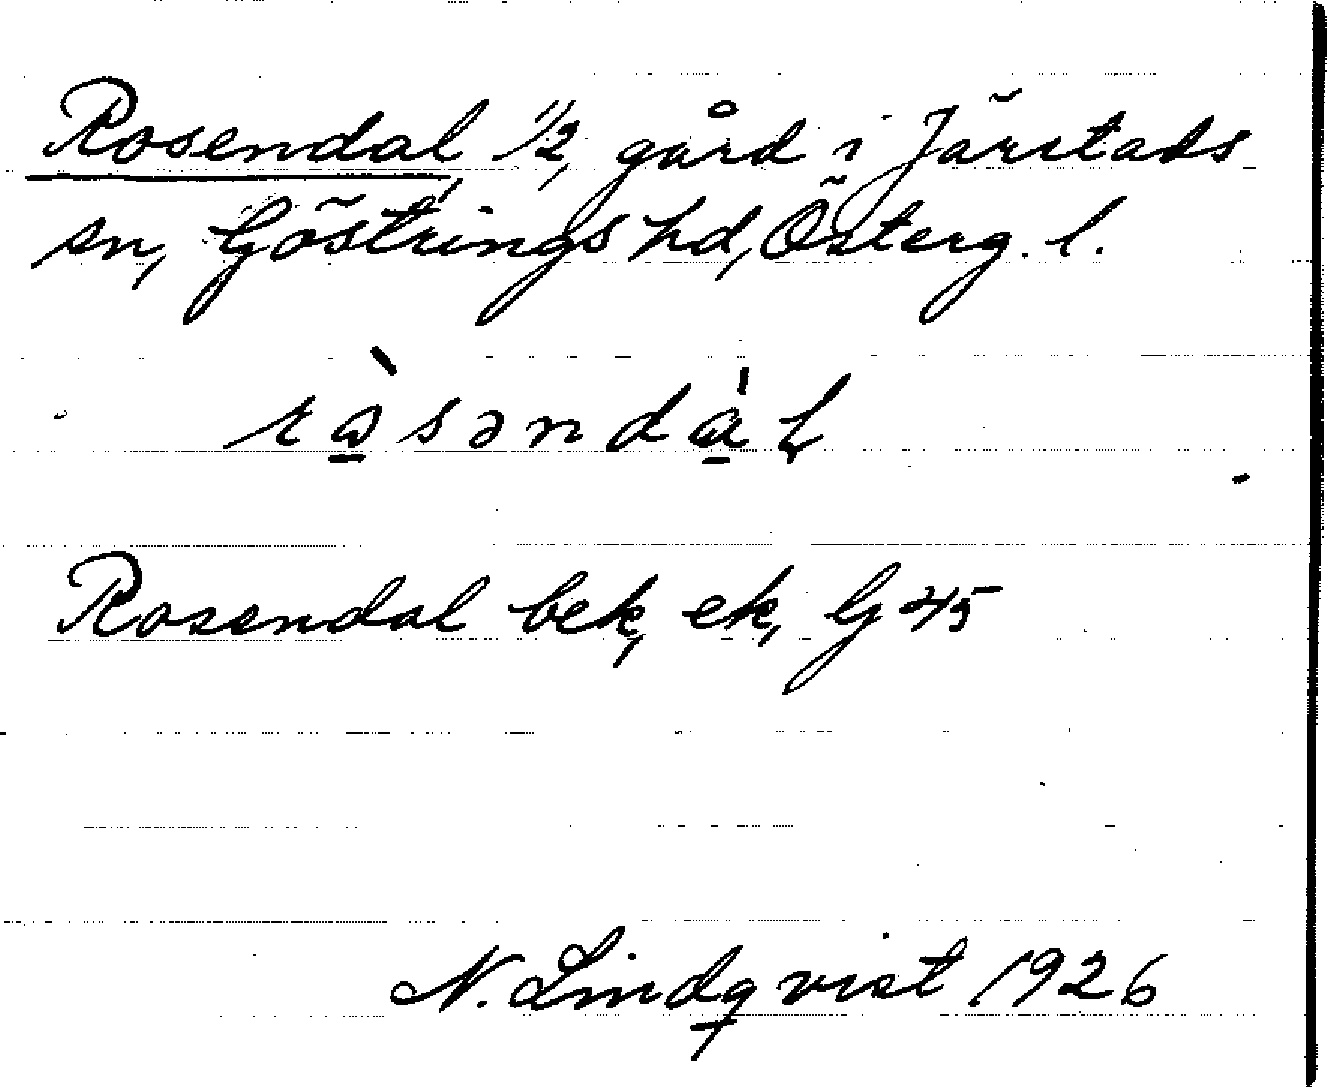 Rosendal, 1/2, gård i Järstads
sn, Göstrings hd, Österg. l.
ròsəndál
Rosendal bek, ek, G 45
N. Lindqvist 1926